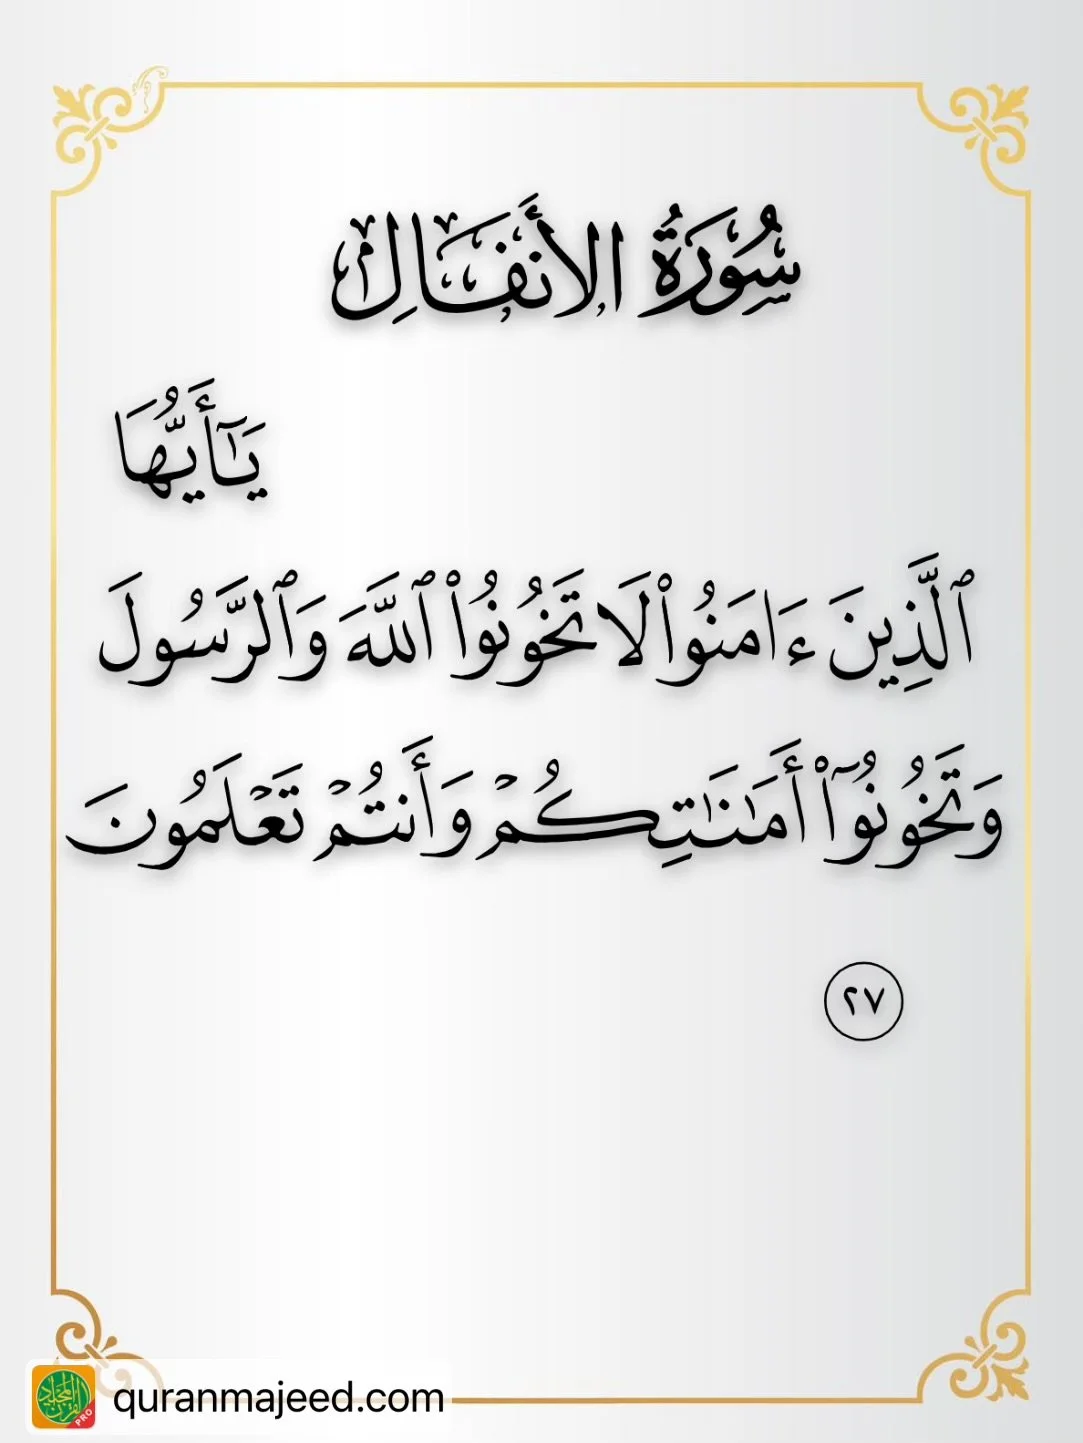 سُورَةُ الأَنفَالِ
يَٰٓأَيُّهَا
ٱلَّذِينَ ءَامَنُوا۟ لَا تَخُونُوا۟ ٱللَّهَ وَٱلرَّسُولَ
وَتَخُونُوٓا۟ أَمَٰنَٰتِكُمْ وَأَنتُمْ تَعْلَمُونَ
٢٧
quranmajeed.com
PRO